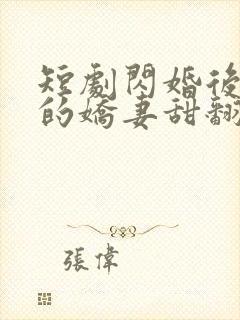 短劇閃婚後
的嬌妻甜翻
張偉